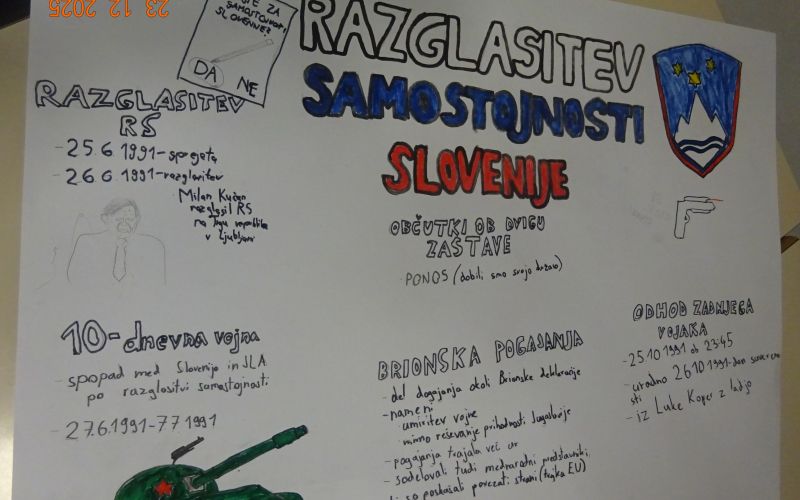 23 12 2025
ZA
SAMOSTOJNOST
SLOVENIJE?
DA
NE
RAZGLASITEV
SAMOSTOJNOSTI
SLOVENIJE
RAZGLASITEV
RS
- 25 6 1991 - sprejeta
- 26 6 1991 - razglasitev
Milan Kučan
razglasil RS
na Trgu republike
v Ljubljani
OBČUTKI OB DVIGU
ZASTAVE
- PONOS (dobili smo svojo državo)
10-dnevna vojna
- spopad med Slovenijo in JLA
po razglasitvi samostojnosti
- 27.6.1991-7.7.1991
BRIONSKA POGAJANJA
- del dogajanja okoli Brionske deklaracije
- nameni
umiritev vojne
mirno reševanje prihodnosti Jugoslavije
- pogajanja trajala več ur
- sodelovali tudi mednarodni predstavniki,
ki so poskušali povezati strani (trojka EU)
ODHOD ZADNJEGA
VOJAKA
- 25 10 1991 ob 23:45
- uradno 26 10 1991 - dan suvereno
sti
- iz Luke Koper z ladjo